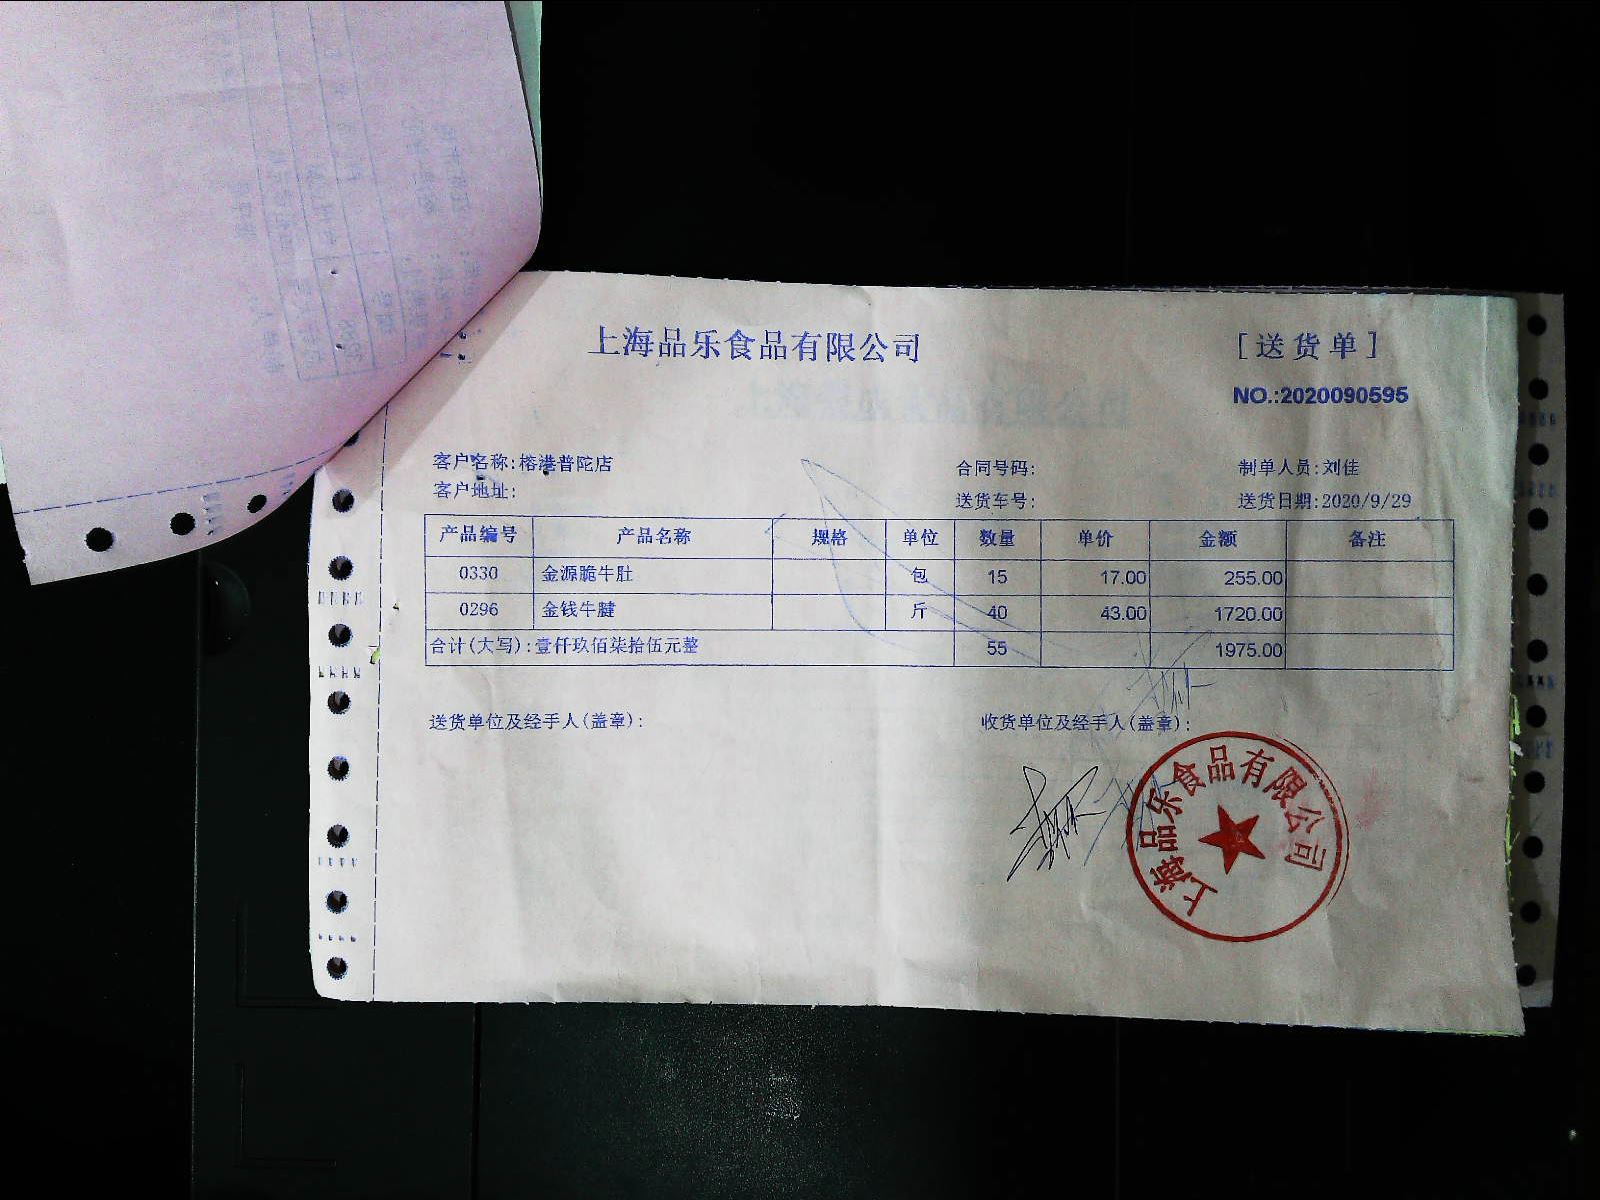 上海品乐食品有限公司 [送货单]
NO.:2020090595
客户名称:榕港普陀店 合同号码: 制单人员:刘佳
客户地址: 送货车号: 送货日期:2020/9/29
产品编号 产品名称 规格 单位 数量 单价 金额 备注
0330 金源脆牛肚 包 15 17.00 255.00
0296 金钱牛腱 斤 40 43.00 1720.00
合计(大写):壹仟玖佰柒拾伍元整 55 1975.00
送货单位及经手人(盖章): 收货单位及经手人(盖章):
上海品乐食品有限公司